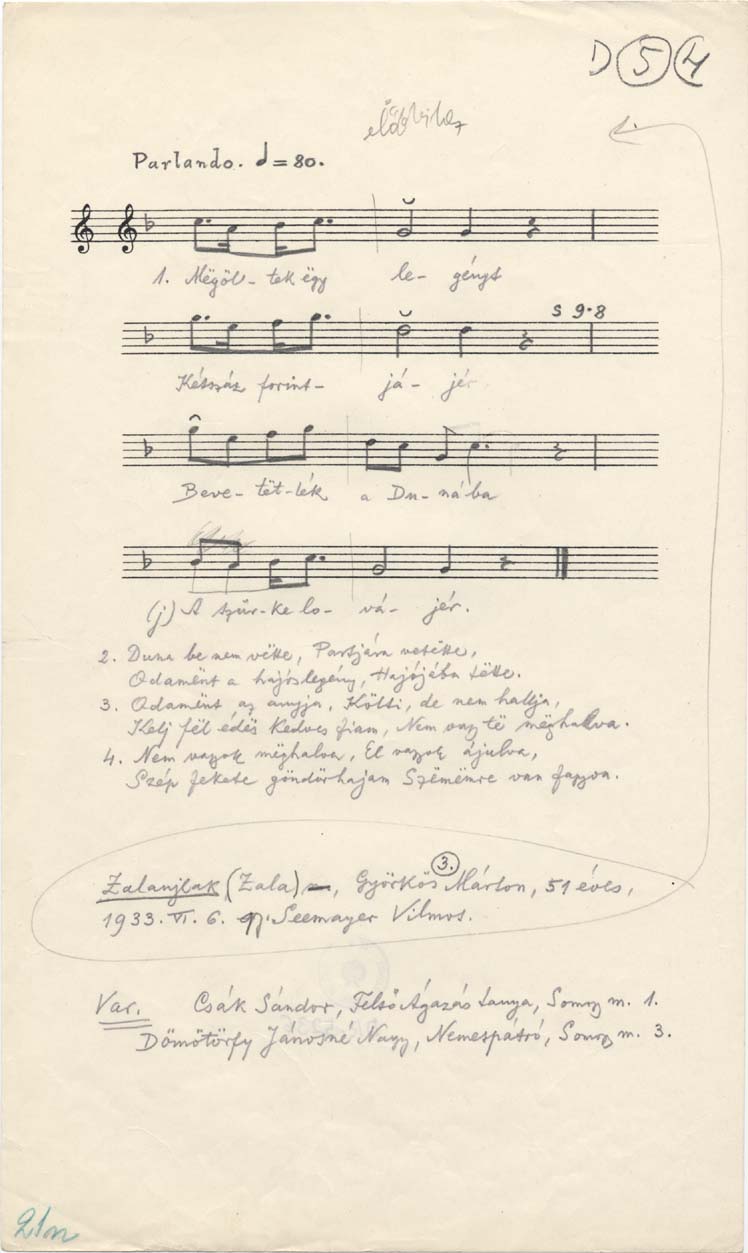 D 5 4
Parlando. ♩=80.
1. Mëgöl-tek ëgy le-gényt
S 9.8
Kétszáz forint-já-jér
Beve-tët-ték a Du-nába
(j) A szür-ke lo-vá-jér.
2. Duna be nem vëtte, Partjára vetëtte,
Odamënt a hajóslegény, Hajójába tëtte.
3. Odamënt az anyja, Költi, de nem hallja,
Kelj fël édës kedves fiam, Nem vagy të mëghalva.
4. Nem vagyok mëghalva, El vagyok ájulva,
Szép fekete göndörhajam Szëmëmre van fagyva.
3.
Zalaujlak (Zala), Györkös Márton, 51 éves,
1933. VI. 6. gy. Seemayer Vilmos.
Var. Csák Sándor, Felső Ágazás tanya, Somogy m. 1.
Dömötörfy Jánosné Nagy, Nemespátró, Somogy m. 3.